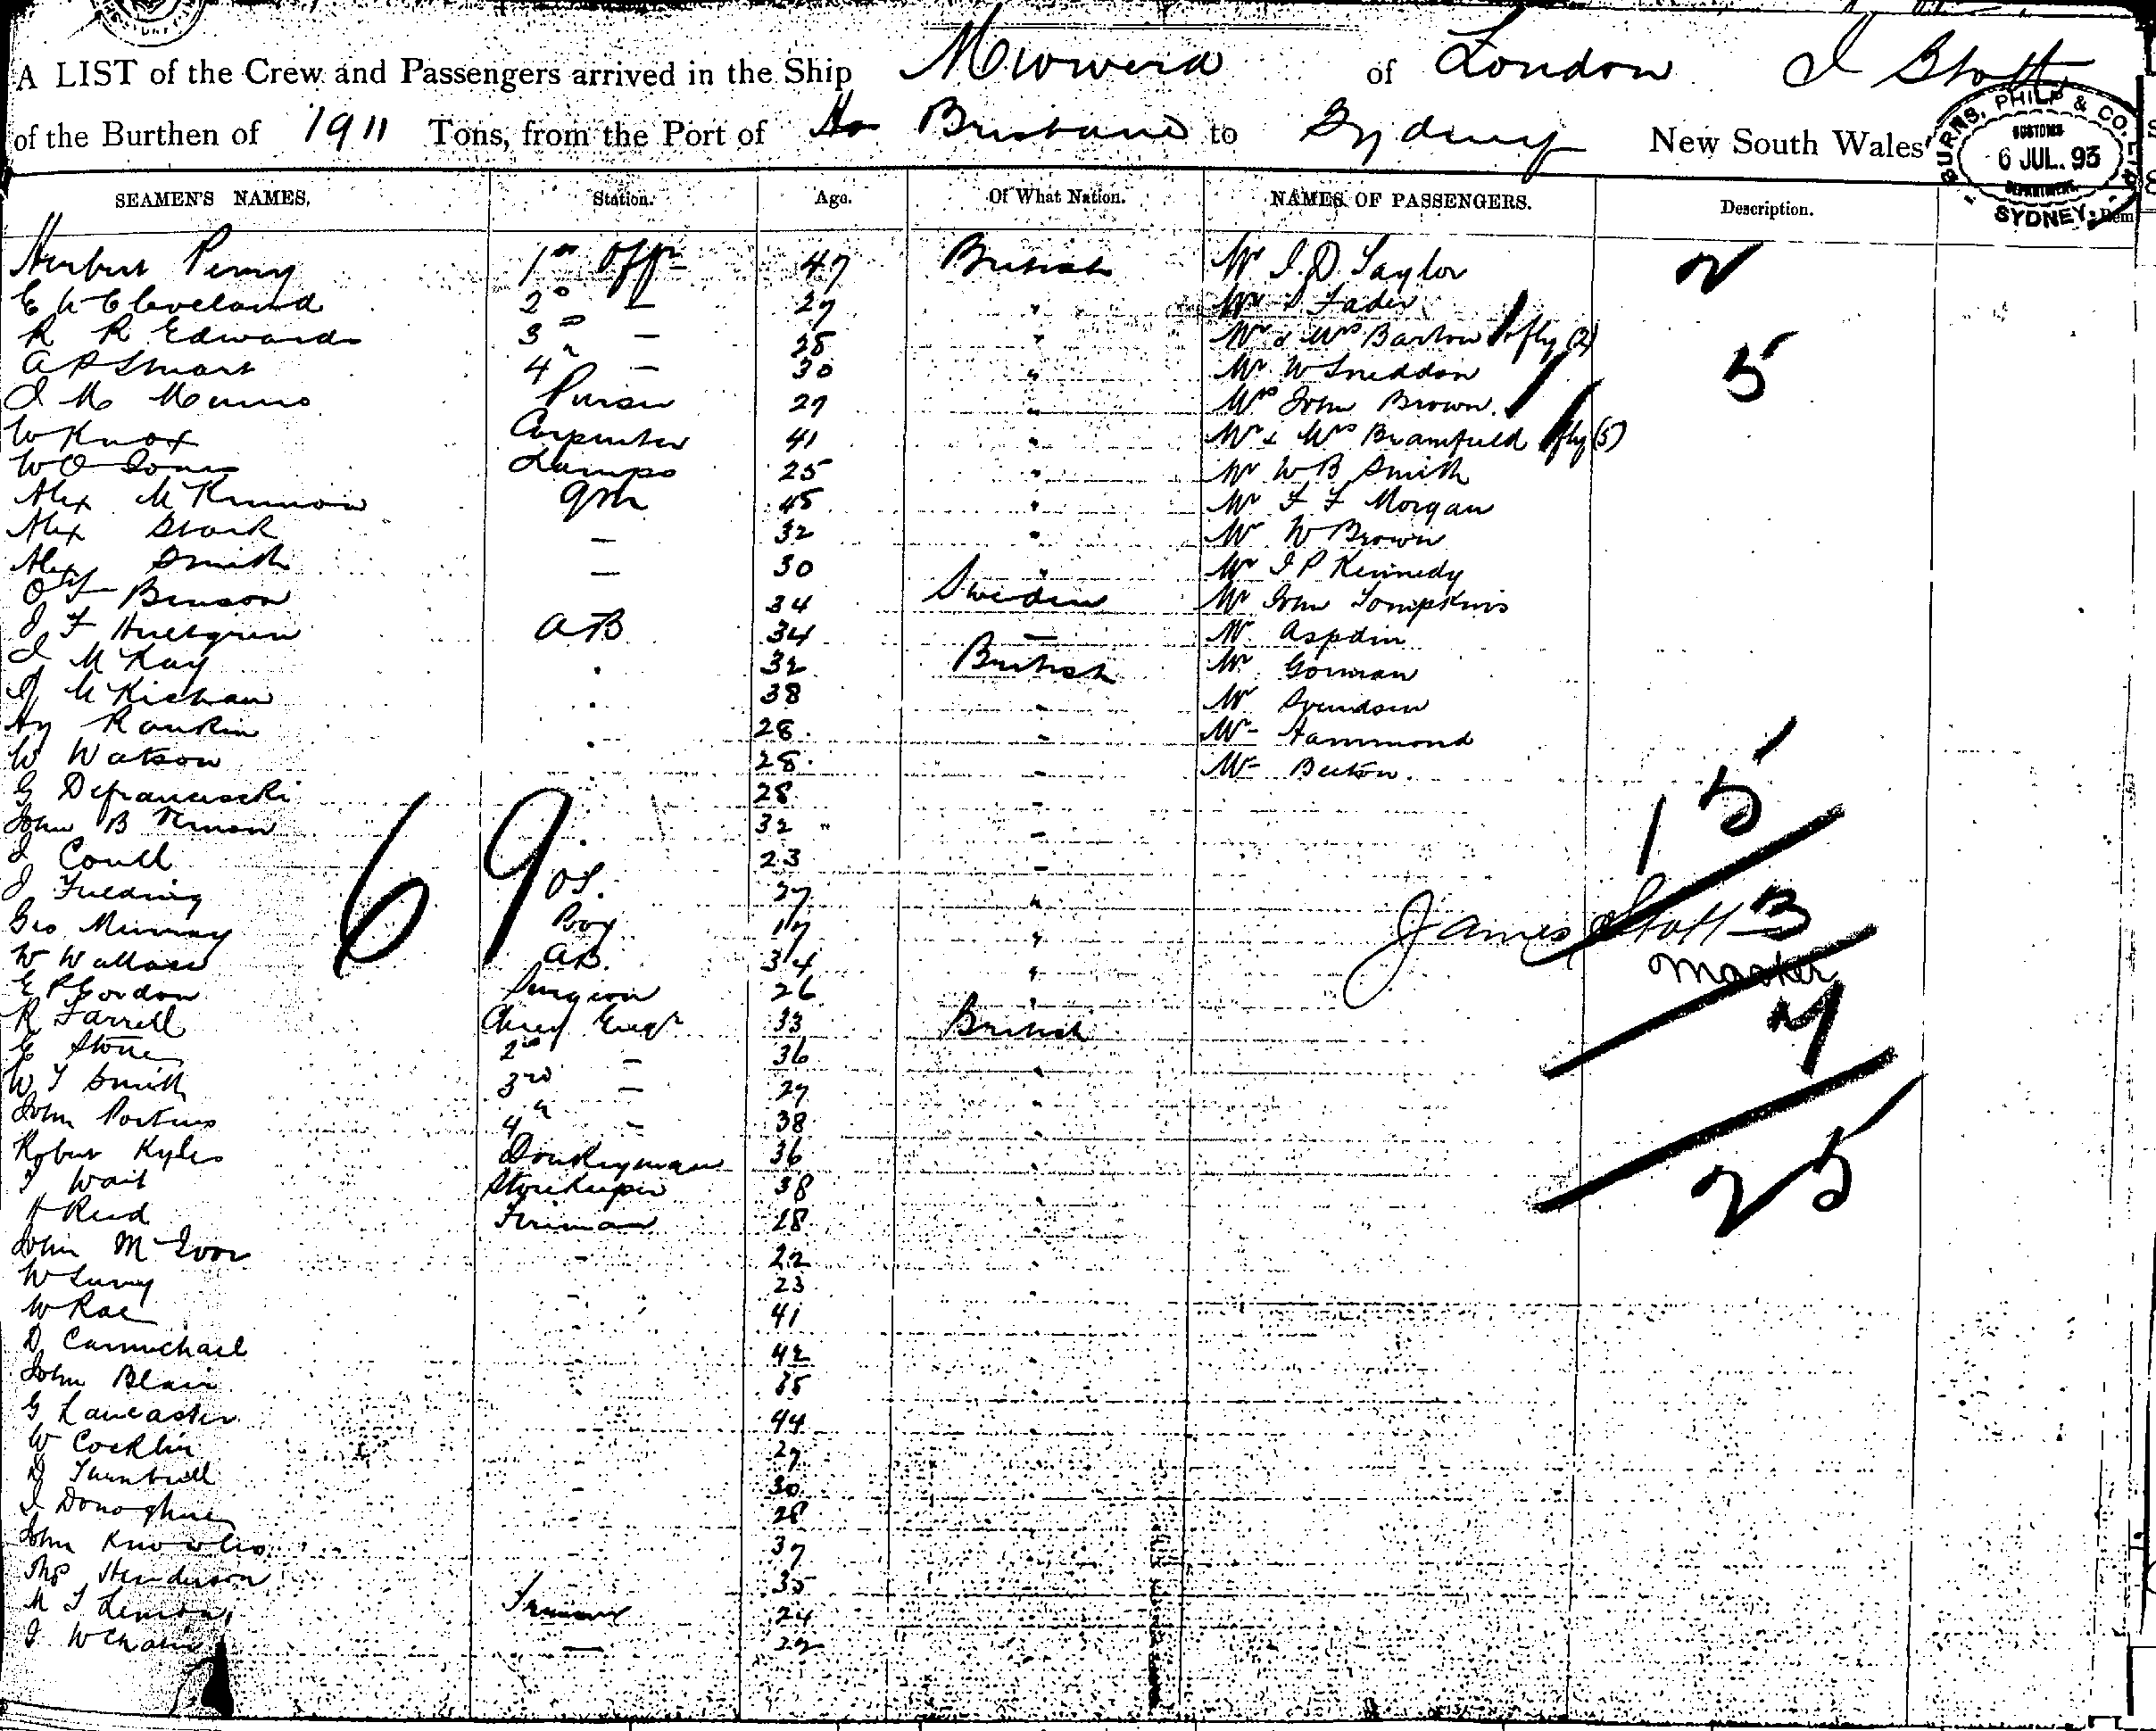 A LIST of the Crew and Passengers arrived in the Ship Miowera of London J Stott
of the Burthen of 1911 Tons, from the Port of Brisbane to Sydney New South Wales
BURNS, PHILP & CO. LTD. CUSTOMS 6 JUL. 93 DEPARTMENT. SYDNEY
SEAMEN'S NAMES. Station. Age. Of What Nation. NAMES OF PASSENGERS. Description.
Herbert Perry 1st Offr 47 British Mr J. D. Taylor 2
E Cleveland 2d — 27 " Mr Fader
R R Edwards 3rd — 28 " Mr & Mrs Barlow & fly (2)
A P Smart 4th — 30 " Mr W Sneddon 5
J M Munro Purser 27 " Mrs John Brown
W Knox Carpenter 41 " Mr & Mrs Bramfield & fly (5)
W O Jones Lamps 25 " Mr W B Smith
Alex McKinnon QM 45 " Mr F F Morgan
Alex Stark — 32 " Mr W Brown
Alex Smith — 30 " Mr J P Kennedy
Benson 34 Sweden Mr John Tompkins
J F Hultgren AB 34 — Mr Aspdin
J McKay " 32 British Mr Gorman
McKichan " 38 " Mr Svendsen
Hy Rankin 28 " Mr Hammond
W Watson " 28 " Mr Beeton
G Defranceschi 28 "
John B Vernon 32 " 15
J Coull 23 "
J Fielding OS. 27 "
69
Geo Murray Boy 17 " James Stott 3
W Wallace AB. 34 " Master
E P Gordon Surgeon 26 "
R Farrell Chief Engr 33 British 7
E Stone 2nd — 36 "
W T Smith 3rd — 27 "
John Porteus 4th — 38 "
Robert Kyles Donkeyman 36 "
Wait Storekeeper 38 " 25
H Reid Fireman 28 "
John McIvor - 22 "
W - 23 "
W Rae - 41 "
D Carmichael - 42 "
John Blair - 35 "
G Lancaster - 44 "
W Cocklin - 27 "
D Turnbull - 30 "
J Donoghue - 28 "
John Knowles - 37 "
Thos Henderson - 35 "
Trimmer 24 "
J — 22 "